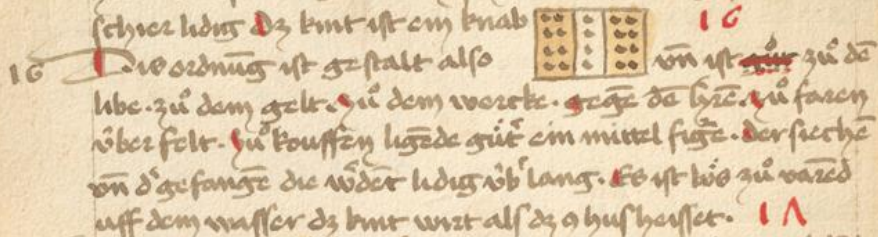 schier lidig dz kint ist ein knab 16
16 Dis ordnūg ist gestalt also vn̄ ist gůt zů dē
libe. zů dem gelt. zů dem wercke. gegē dē hrē. zů faren
v̊ber felt. zů kouffen ligēde gůt ein mittel figᵉ. der siechē
vn̄ dˢ gefangē die wˢdēt lidig v̊bˢ lang. Es ist bo̊s zů varēd
uff dem wasser dz kint wirt als dz 9 hus heisset. 1Λ